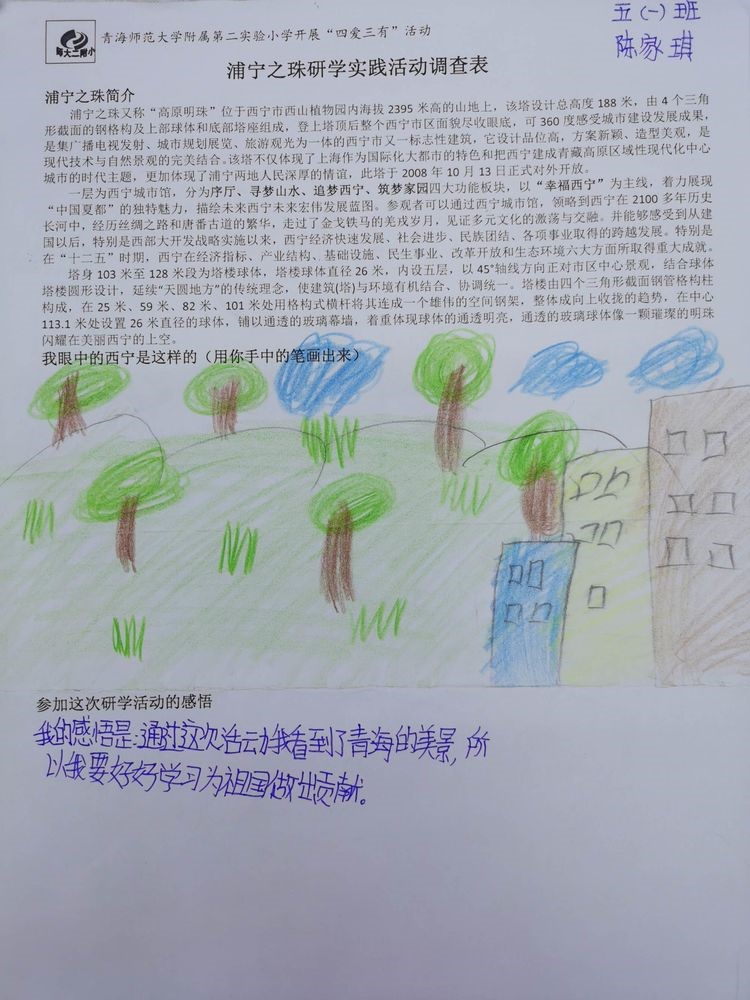 五(一)班
陈家琪
青大二附小
青海师范大学附属第二实验小学开展“四爱三有”活动
浦宁之珠研学实践活动调查表
浦宁之珠简介
浦宁之珠又称“高原明珠”位于西宁市西山植物园内海拔 2395 米高的山地上，该塔设计总高度 188 米，由 4 个三角
形截面的钢格构及上部球体和底部塔座组成，登上塔顶后整个西宁市区面貌尽收眼底，可 360 度感受城市建设发展成果，
是集广播电视发射、城市规划展览、旅游观光为一体的西宁市又一标志性建筑，它设计品位高，方案新颖、造型美观，是
现代技术与自然景观的完美结合。该塔不仅体现了上海作为国际化大都市的特色和把西宁建成青藏高原区域性现代化中心
城市的时代主题，更加体现了浦宁两地人民深厚的情谊，此塔于 2008 年 10 月 13 日正式对外开放。
一层为西宁城市馆，分为序厅、寻梦山水、追梦西宁、筑梦家园四大功能板块，以“幸福西宁”为主线，着力展现
“中国夏都”的独特魅力，描绘未来西宁未来宏伟发展蓝图。参观者可以通过西宁城市馆，领略到西宁在 2100 多年历史
长河中，经历丝绸之路和唐番古道的繁华，走过了金戈铁马的羌戎岁月，见证多元文化的激荡与交融。并能够感受到从建
国以后，特别是西部大开发战略实施以来，西宁经济快速发展、社会进步、民族团结、各项事业取得的跨越发展。特别是
在“十二五”时期，西宁在经济指标、产业结构、基础设施、民生事业、改革开放和生态环境六大方面所取得重大成就。
塔身 103 米至 128 米段为塔楼球体，塔楼球体直径 26 米，内设五层，以 45°轴线方向正对市区中心景观，结合球体
塔楼圆形设计，延续“天圆地方”的传统理念，使建筑(塔)与环境有机结合、协调统一。塔楼由四个三角形截面钢管格构柱
构成，在 25 米、59 米、82 米、101 米处用格构式横杆将其连成一个雄伟的空间钢架，整体成向上收拢的趋势，在中心
113.1 米处设置 26 米直径的球体，铺以通透的玻璃幕墙，着重体现球体的通透明亮，通透的玻璃球体像一颗璀璨的明珠
闪耀在美丽西宁的上空。
我眼中的西宁是这样的（用你手中的笔画出来）
参加这次研学活动的感悟
我的感悟是:通过这次活动我看到了青海的美景,所
以我要好好学习为祖国做出贡献。